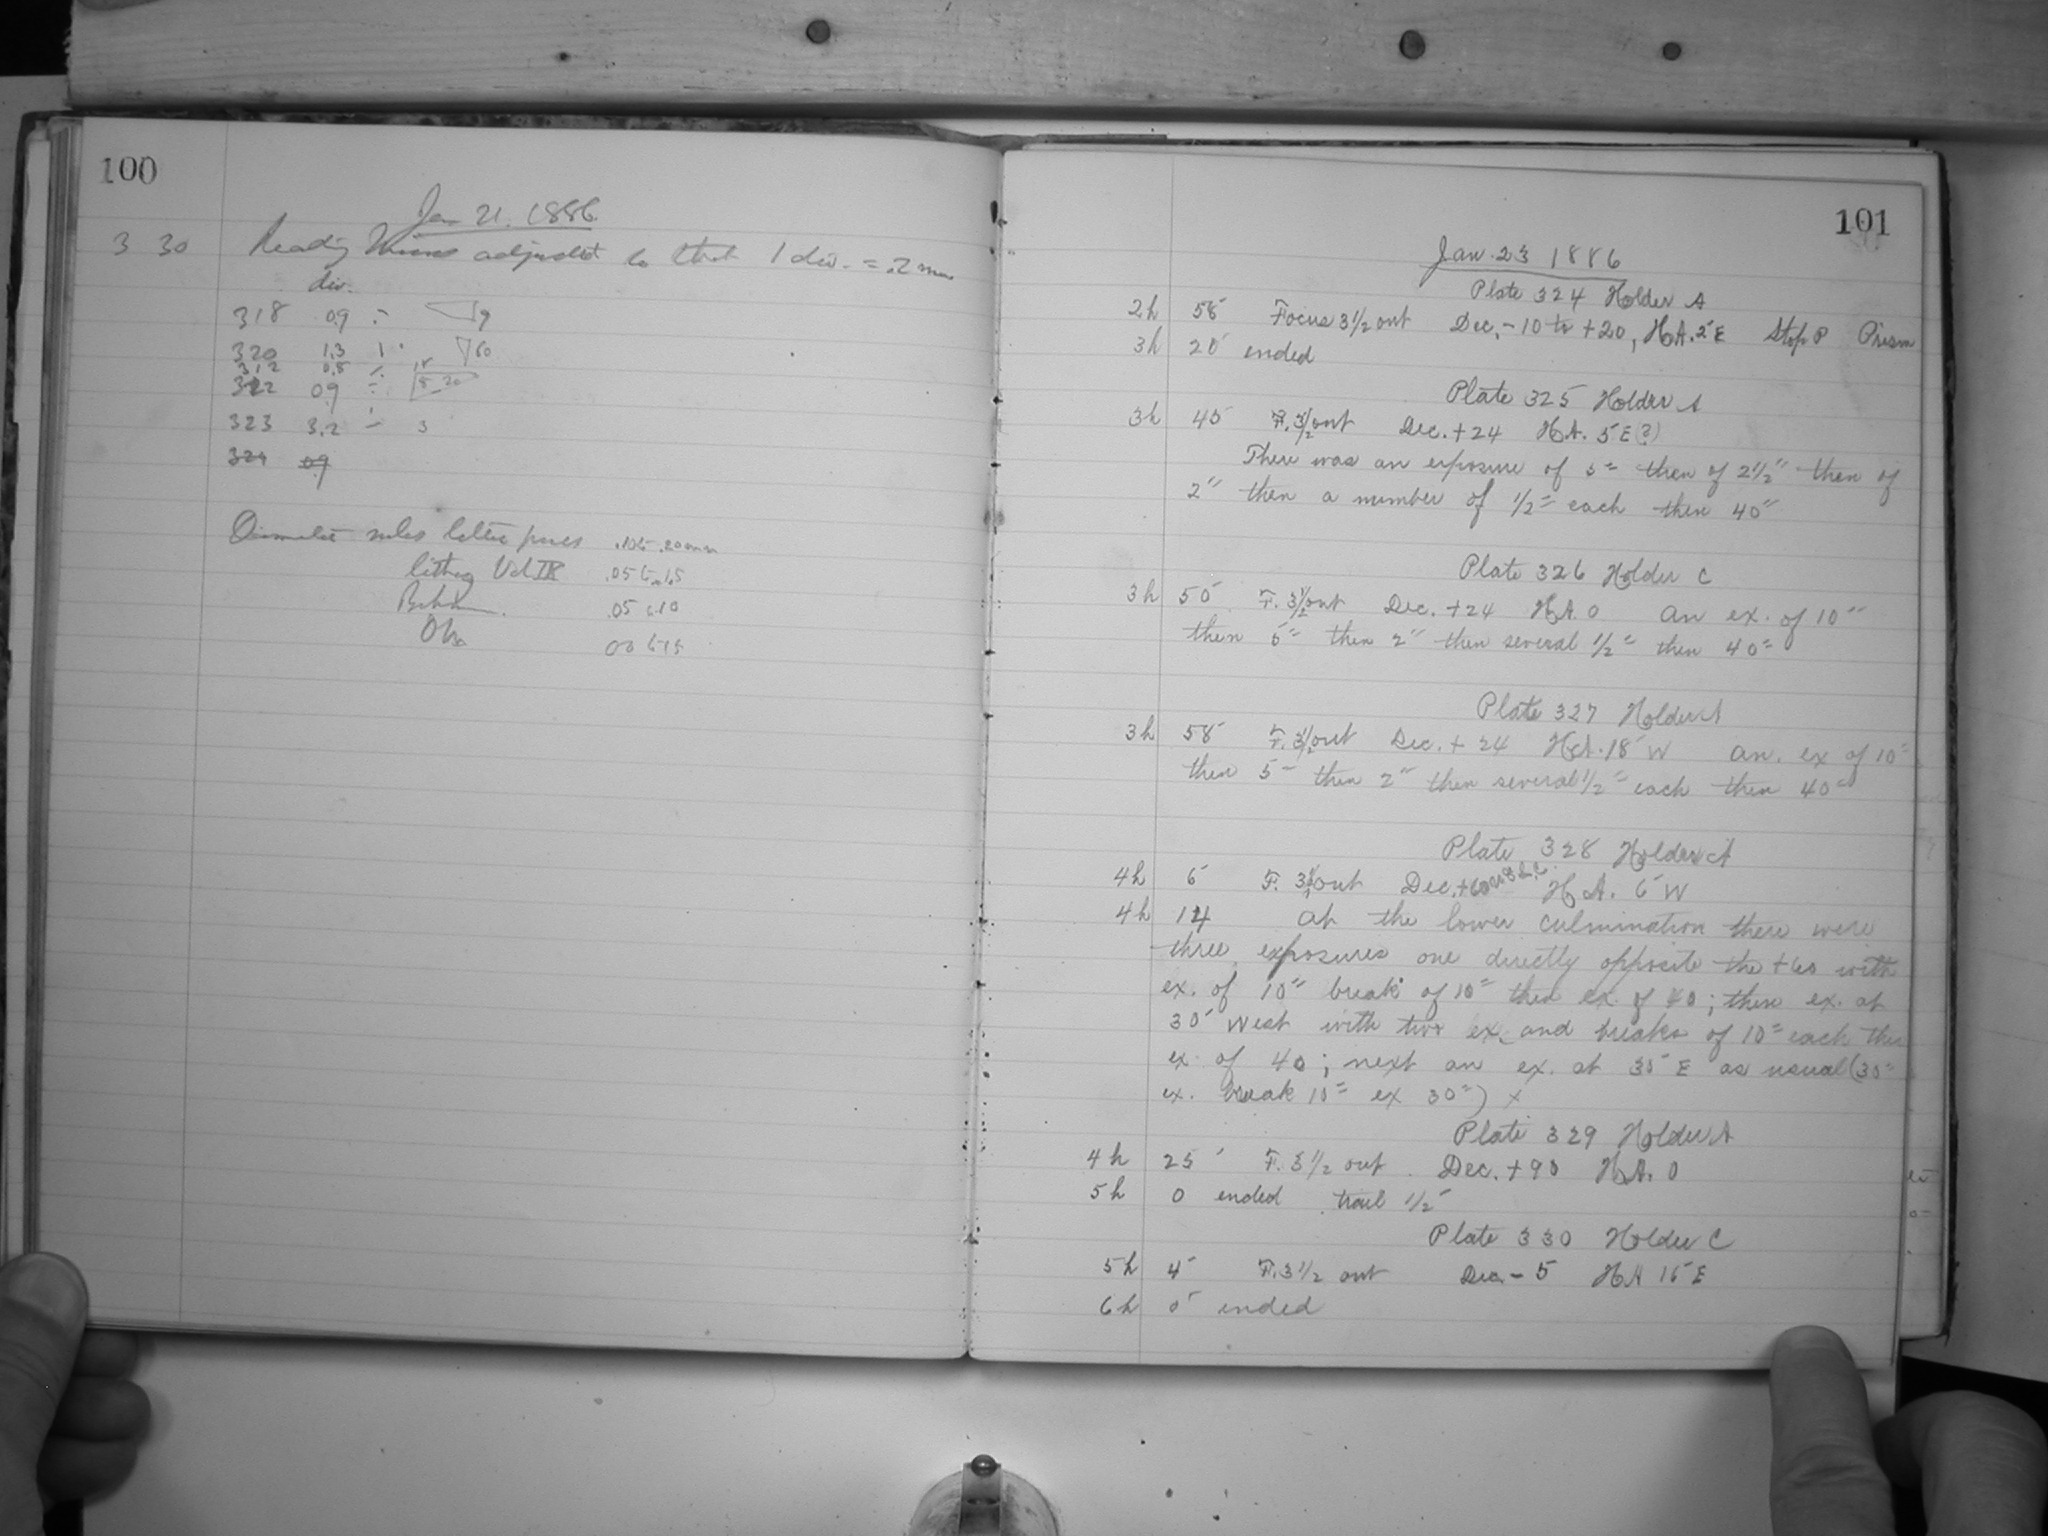 100
Jan 21. 1886
3 30 Reading Micros adjusted so that 1 div. = .2 mm
div.
318 0.9 9
320 1.3 60
312 0.8
322 0.9
323 3.2 — 3
324 0.9
letter press .10 .20 mm
lithog Vol IX .05 .15
.05 .10
101
Jan. 23 1886
Plate 324 Holder A
2h 55 Focus 3 1/2 out Dec. -10 to +20, H.A. 2 E Stop P Prism
3h 20 ended
Plate 325 Holder A
3h 45 F. 3 1/2 out Dec. +24 H.A. 5 E (?)
There was an exposure of 5" then of 2 1/2" then of
2" then a number of 1/2" each then 40"
Plate 326 Holder C
3h 50 F. 3 1/2 out Dec. +24 H.A. 0 an ex. of 10"
then 5" then 2" then several 1/2" then 40"
Plate 327 Holder A
3h 55 F. 3 1/2 out Dec. + 24 H.A. 15 W an. ex of 10"
then 5" then 2" then several 1/2" each then 40"
Plate 328 Holder A
4h 5 F. 3 1/2 out Dec. +60 H.A. 5 W
4h 14 at the lower culmination there were
three exposures one directly opposite the +60 with
ex. of 10" break of 10" then ex. of 40; then ex. at
30 West with two ex. and breaks of 10" each then
ex of 40; next an ex. at 30 E as usual (30"
ex. break 10" ex 30") x
Plate 329 Holder A
4h 25 F. 3 1/2 out Dec. +90 H.A. 0
5h 0 ended trail 1/2
Plate 330 Holder C
5h 4 F. 3 1/2 out Dec. - 5 H A 15 E
6h 0 ended